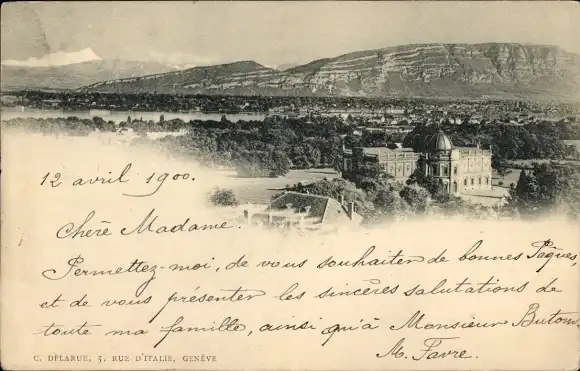 12 avril 1900.
Chère Madame.
Permettez-moi, de vous souhaiter de bonnes Pâques,
et de vous présenter les sincères salutations de
toute ma famille, ainsi qu'à Monsieur Butom.
M. Favre.
C. DELARUE, 3, RUE D'ITALIE, GENÈVE